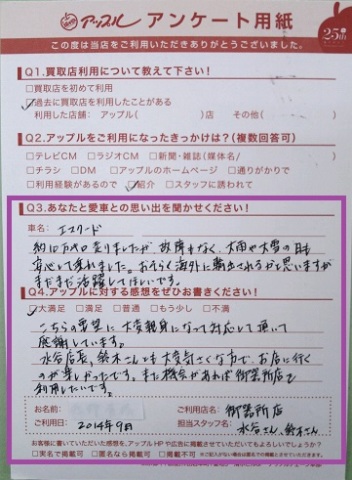 アップル アンケート用紙
25th
この度は当店をご利用いただきありがとうございました。
Q1.買取店利用について教えて下さい!
□買取店を初めて利用
☑過去に買取店を利用したことがある
利用した店舗: アップル( )店 その他( )
Q2.アップルをご利用になったきっかけは?(複数回答可)
□テレビCM □ラジオCM □新聞・雑誌(媒体名/ )
□チラシ □DM □アップルのホームページ □通りがかりで
□利用経験があるので ☑紹介 □スタッフに誘われて
Q3.あなたと愛車との思い出を聞かせください!
車名: エスクード
約10万キロ走りましたが、故障もなく、大雨や大雪の日も
安心して乗れました。おそらく海外に輸出されるかと思いますが
まだまだ活躍してほしいです。
Q4.アップルに対する感想をぜひお書きください!
☑大満足 □満足 □普通 □もう少し □不満
こちらの要望に大変親身になって対応して頂いて
感謝しています。
水谷店長、鈴木さんとても大変気さくな方で、お店に行く
のが楽しかったです。また機会があれば御器所店を
利用したいです。
お名前: ご利用店名: 御器所店
ご利用日: 2014年9月 担当スタッフ名: 水谷さん、鈴木さん
お客様に書いていただいた感想を、アップルHPや広告に掲載させていただいてもよろしいでしょうか?
□実名で掲載可 □匿名なら掲載可 □掲載不可